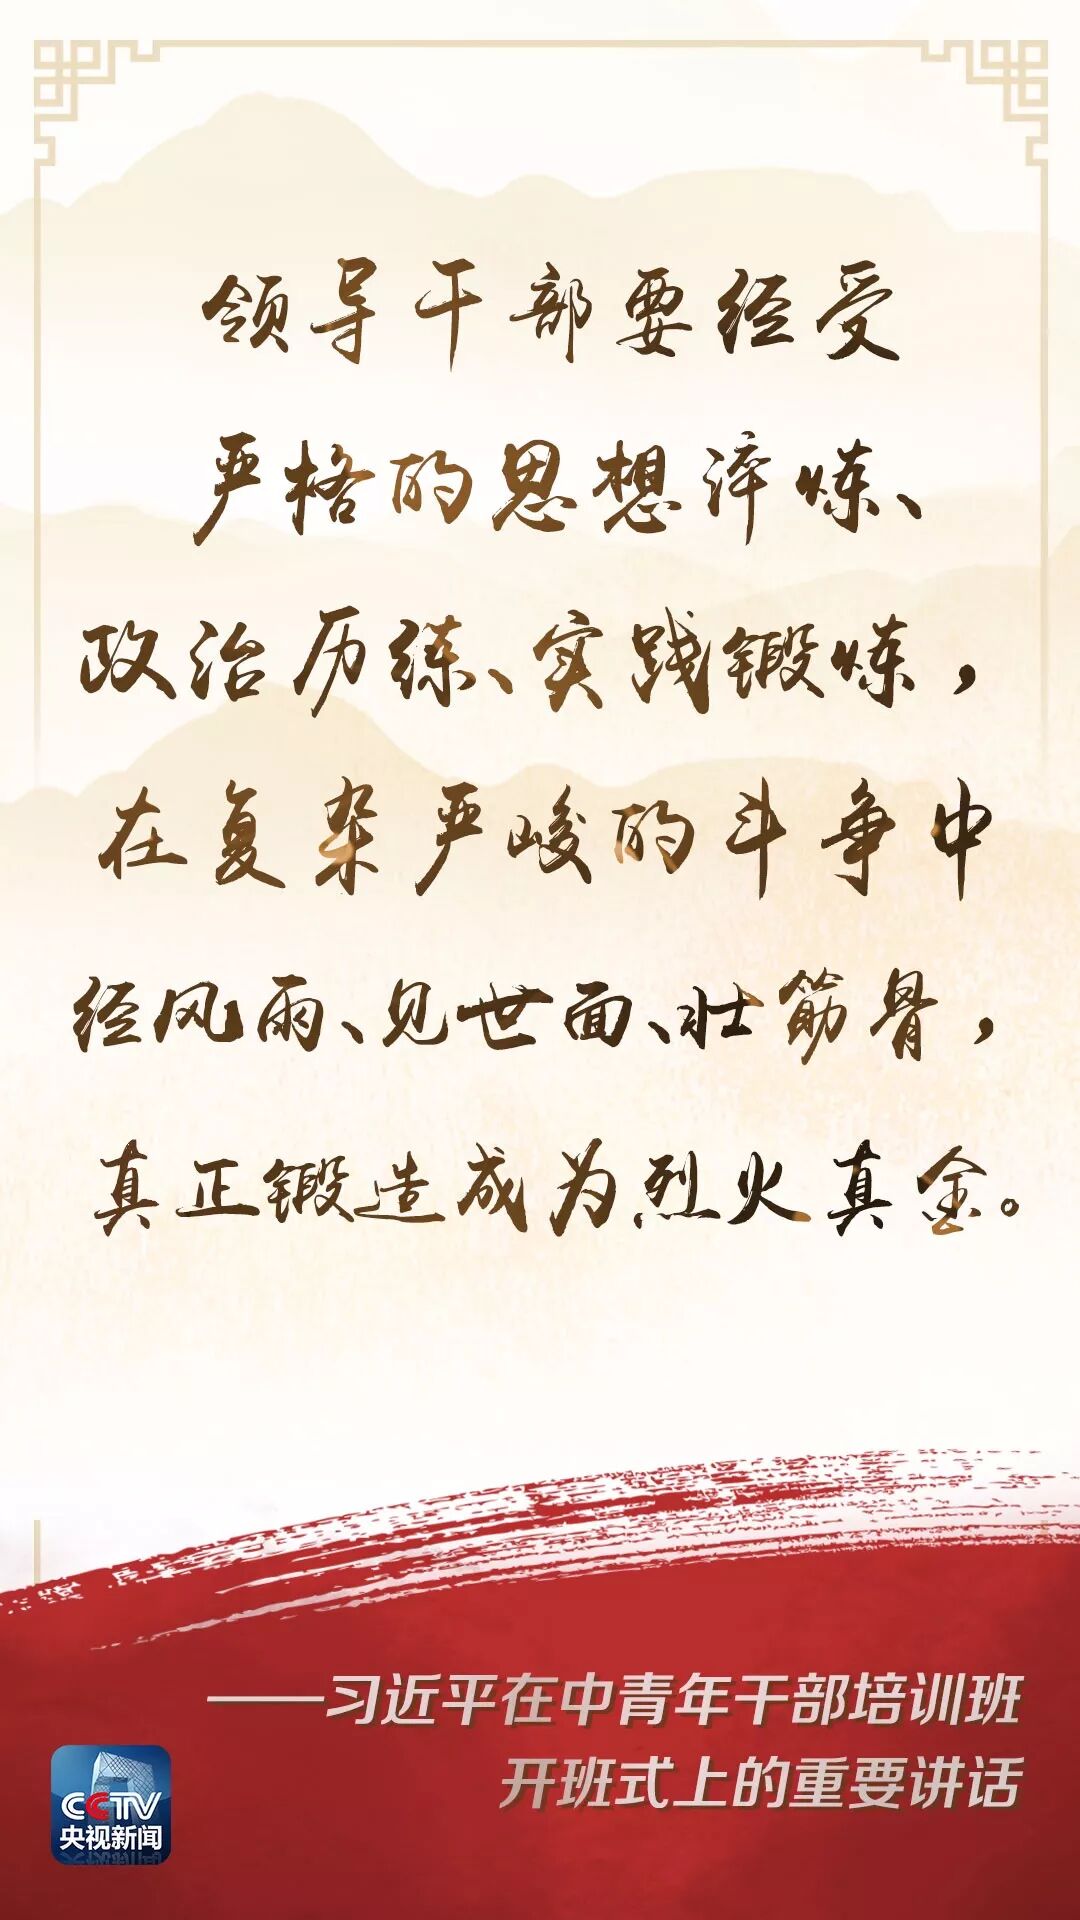 领导干部要经受
严格的思想淬炼、
政治历练、实践锻炼，
在复杂严峻的斗争中
经风雨、见世面、壮筋骨，
真正锻造成为烈火真金。
——习近平在中青年干部培训班
开班式上的重要讲话
CCTV
央视新闻